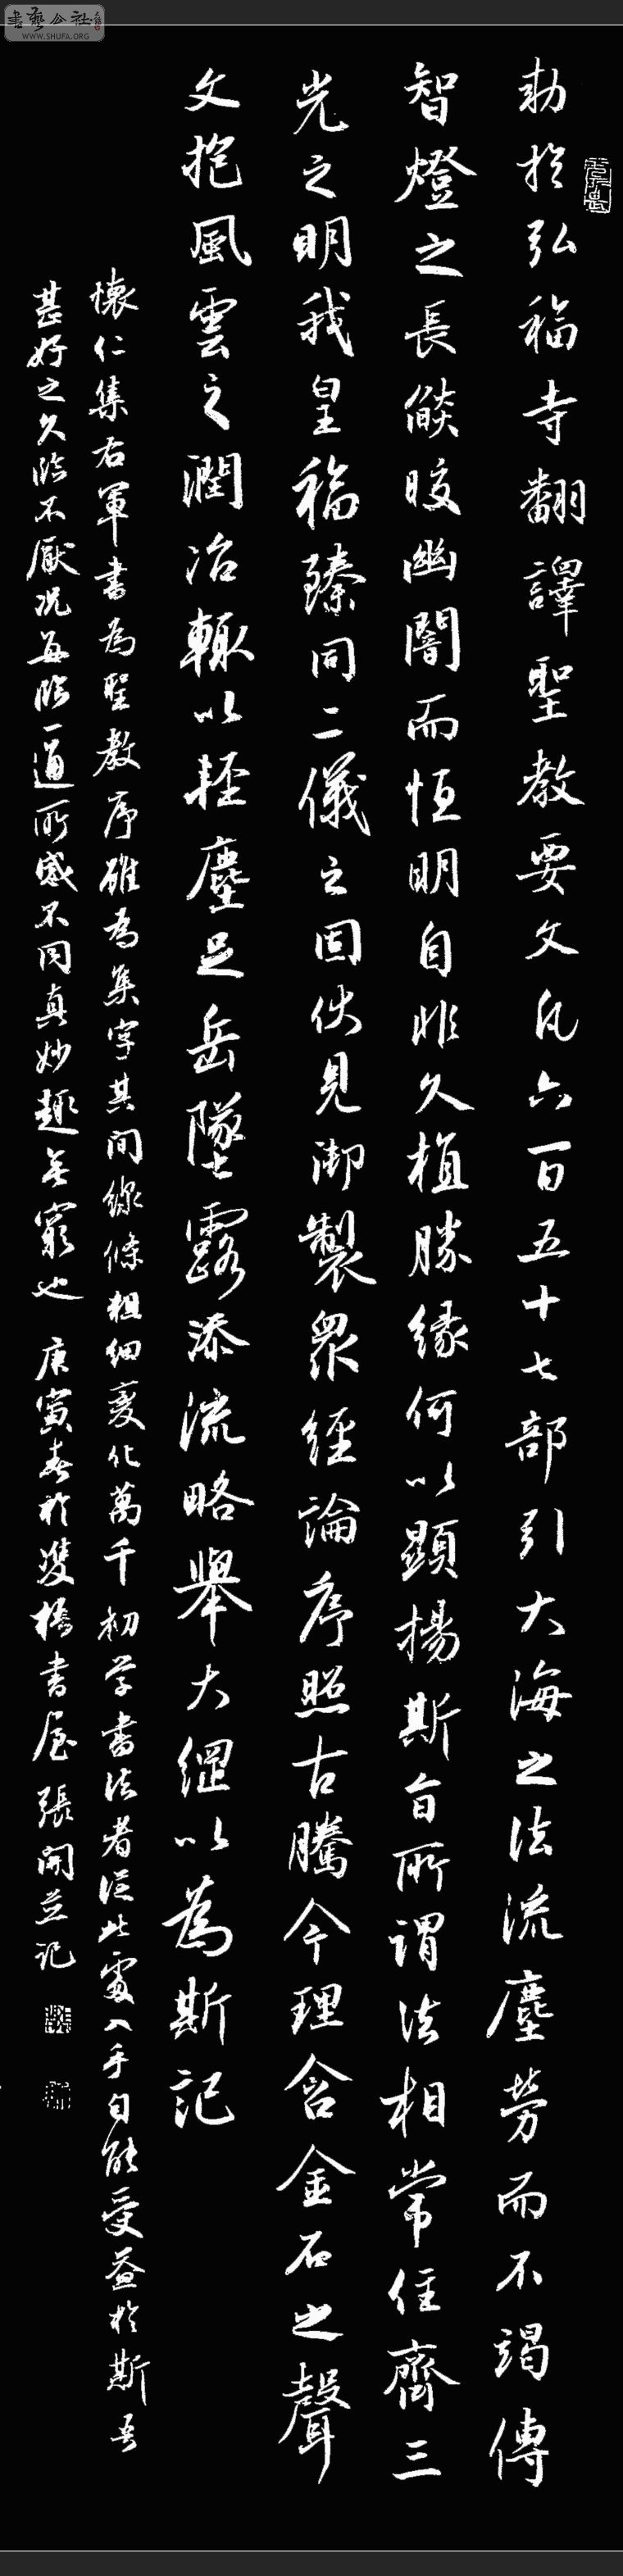 書藝公社
WWW.SHUFA.ORG
勅於弘福寺翻譯聖教要文凡六百五十七部引大海之法流塵勞而不竭傳
智燈之長燄皎幽闇而恒明自非久植勝緣何以顯揚斯旨所謂法相常住齊三
光之明我皇福臻同二儀之固伏見御製眾經論序照古騰今理含金石之聲
文抱風雲之潤治輒以輕塵足岳墜露添流略舉大綱以為斯記
懷仁集右軍書為聖教序雖為集字其間線條粗細變化萬千初学書法者從此處入手自能受益於斯吾
甚好之久臨不厭況每臨一通所感不同真妙趣無窮也 庚寅春於雙橋書屋張開並記